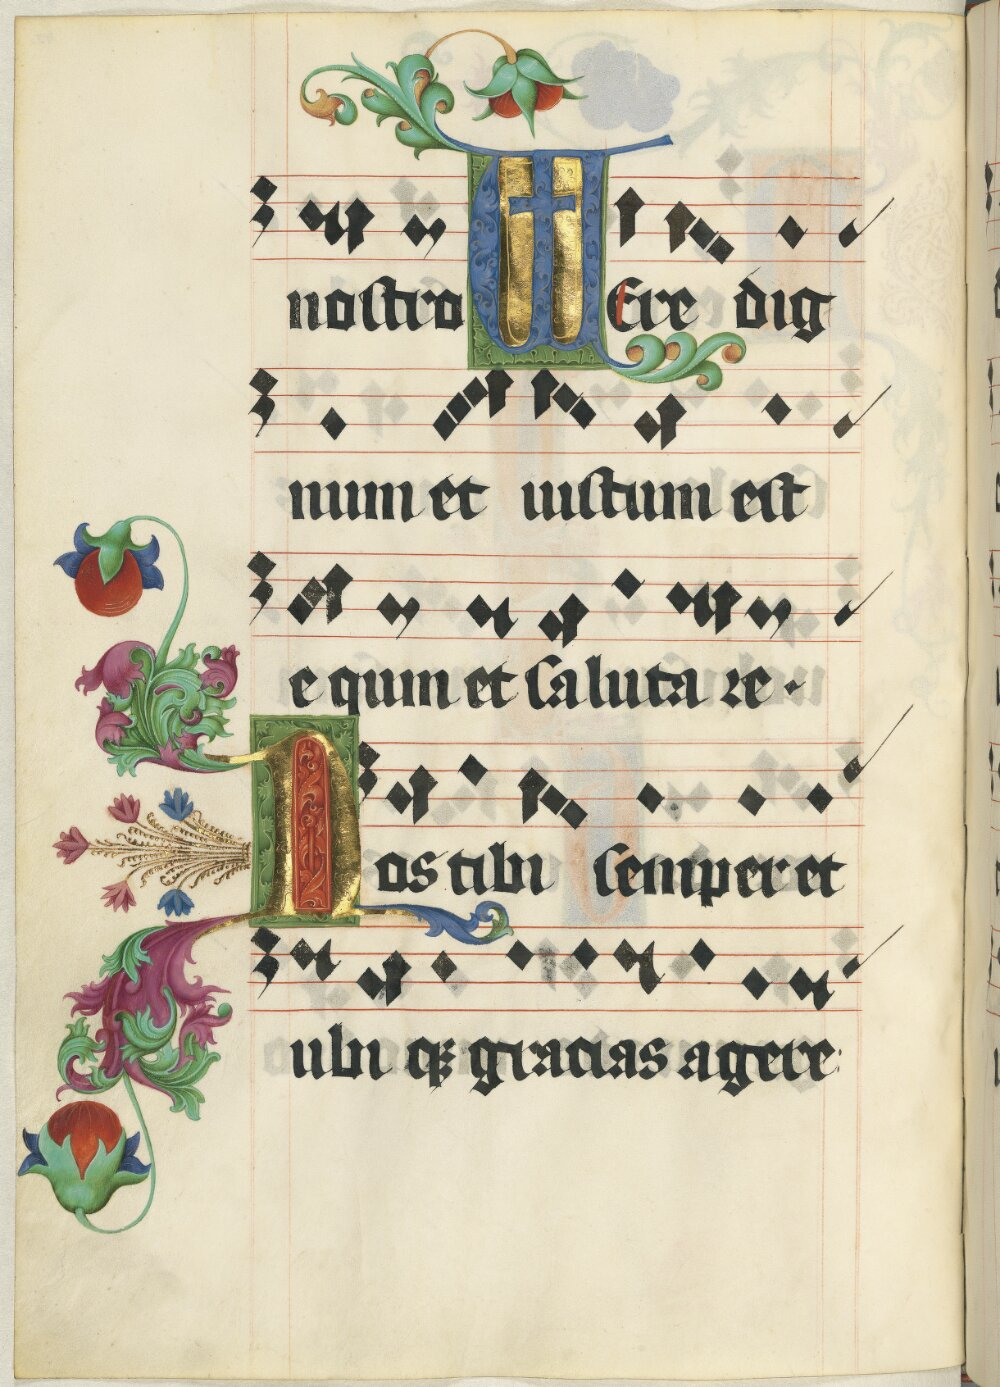 nostro VEre dig
num et iustum est
equm et saluta re.
Nos tibi semper et
ubi qꝫ gracias agere: